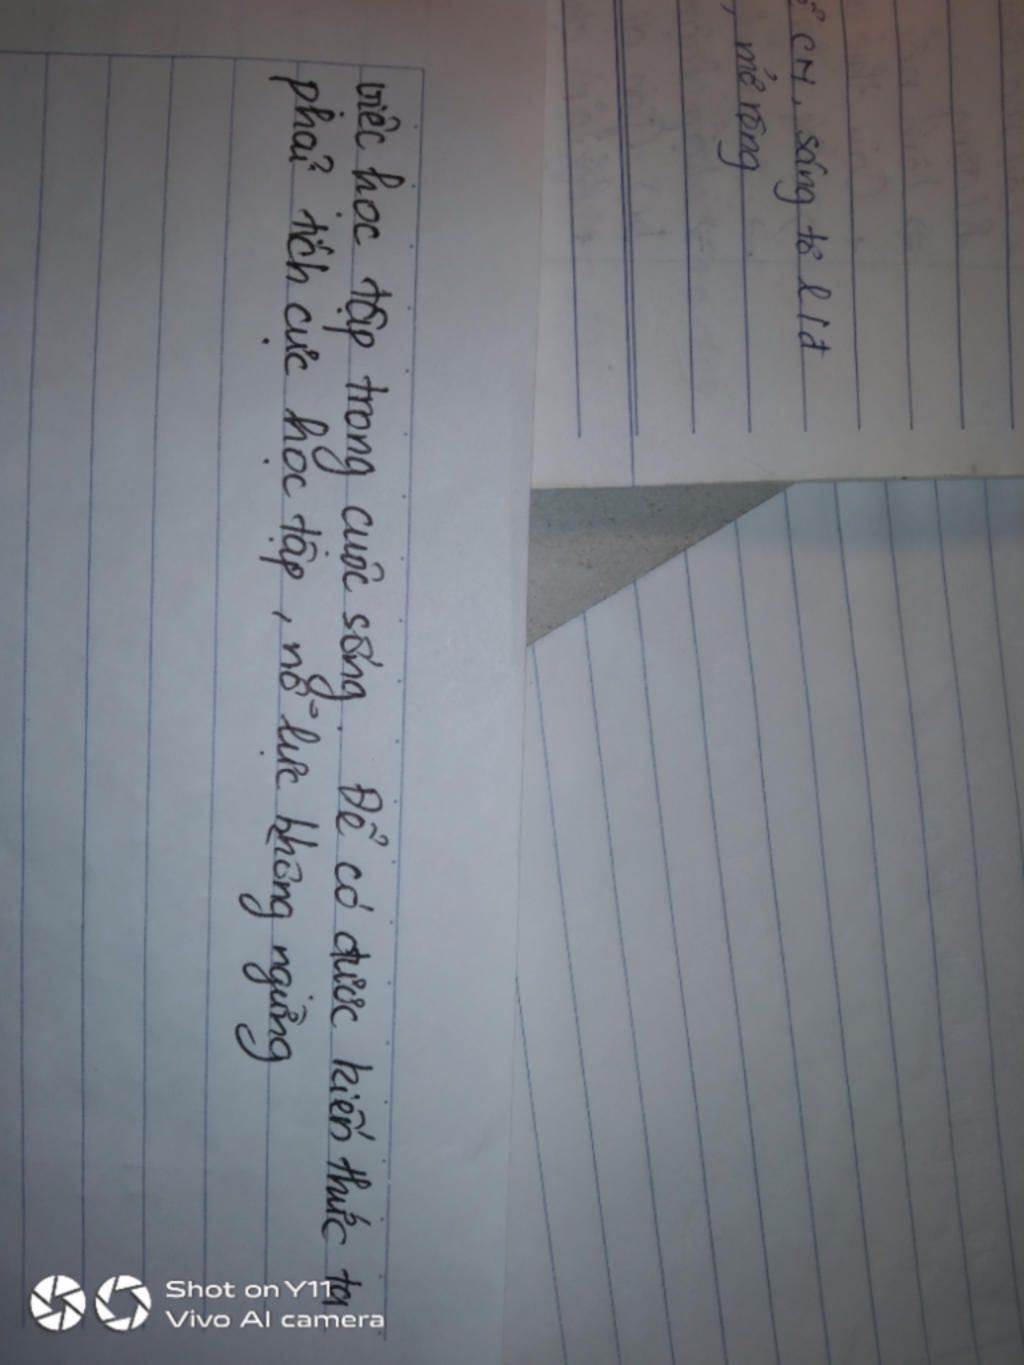 việc học tập trong cuộc sống. Để có được kiến thức ta
phải tích cực học tập, nỗ lực không ngừng
CN, sáng tỏ l l đ
, mở rộng
Shot on Y11
Vivo AI camera